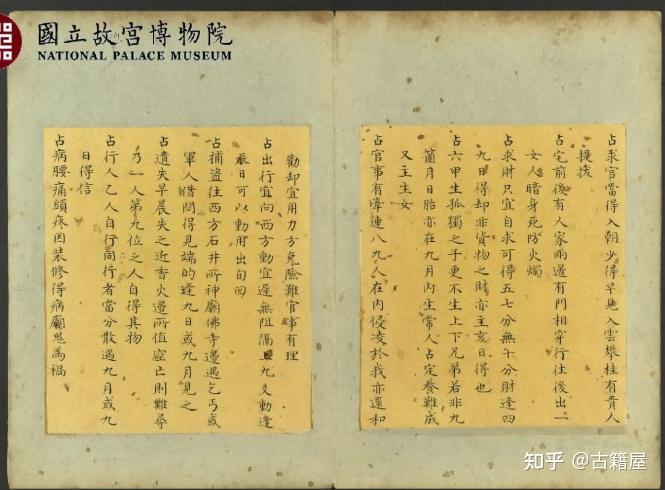 國立故宮博物院
NATIONAL PALACE MUSEUM
占求官當得入朝少得早見入雲攀桂有貴人
提拔
占宅前後有人家兩邊有門相穿行往後出二
女人暗身死防火燭
占求財只宜自求可得五七分無十分財逢四
九日得却非貨物之財亦主亥日得也
占六甲生孤獨之子更不生上下兄弟若非九
箇月日胎亦在九月內生常人占定養難成
又主生女
占官事有牽連八九人在內侵凌於我亦還和
勸却宜用力方免險難官事有理
占出行宜向西方動宜遲無阻隔九爻動逢
辰日可以動用出旬回
占捕盜往西方石井所神廟佛寺邊遇乞丐或
軍人借問得見端的逢九日或九月見之
占遺失早晨失之近香火邊所值空亡則難尋
乃一人第九位之人自得真物
占行人乙人自行同行者當分散遇九月或九
日得信
占病腰痛頭疼因裝修得病廟鬼為禍
知乎 @古籍屋